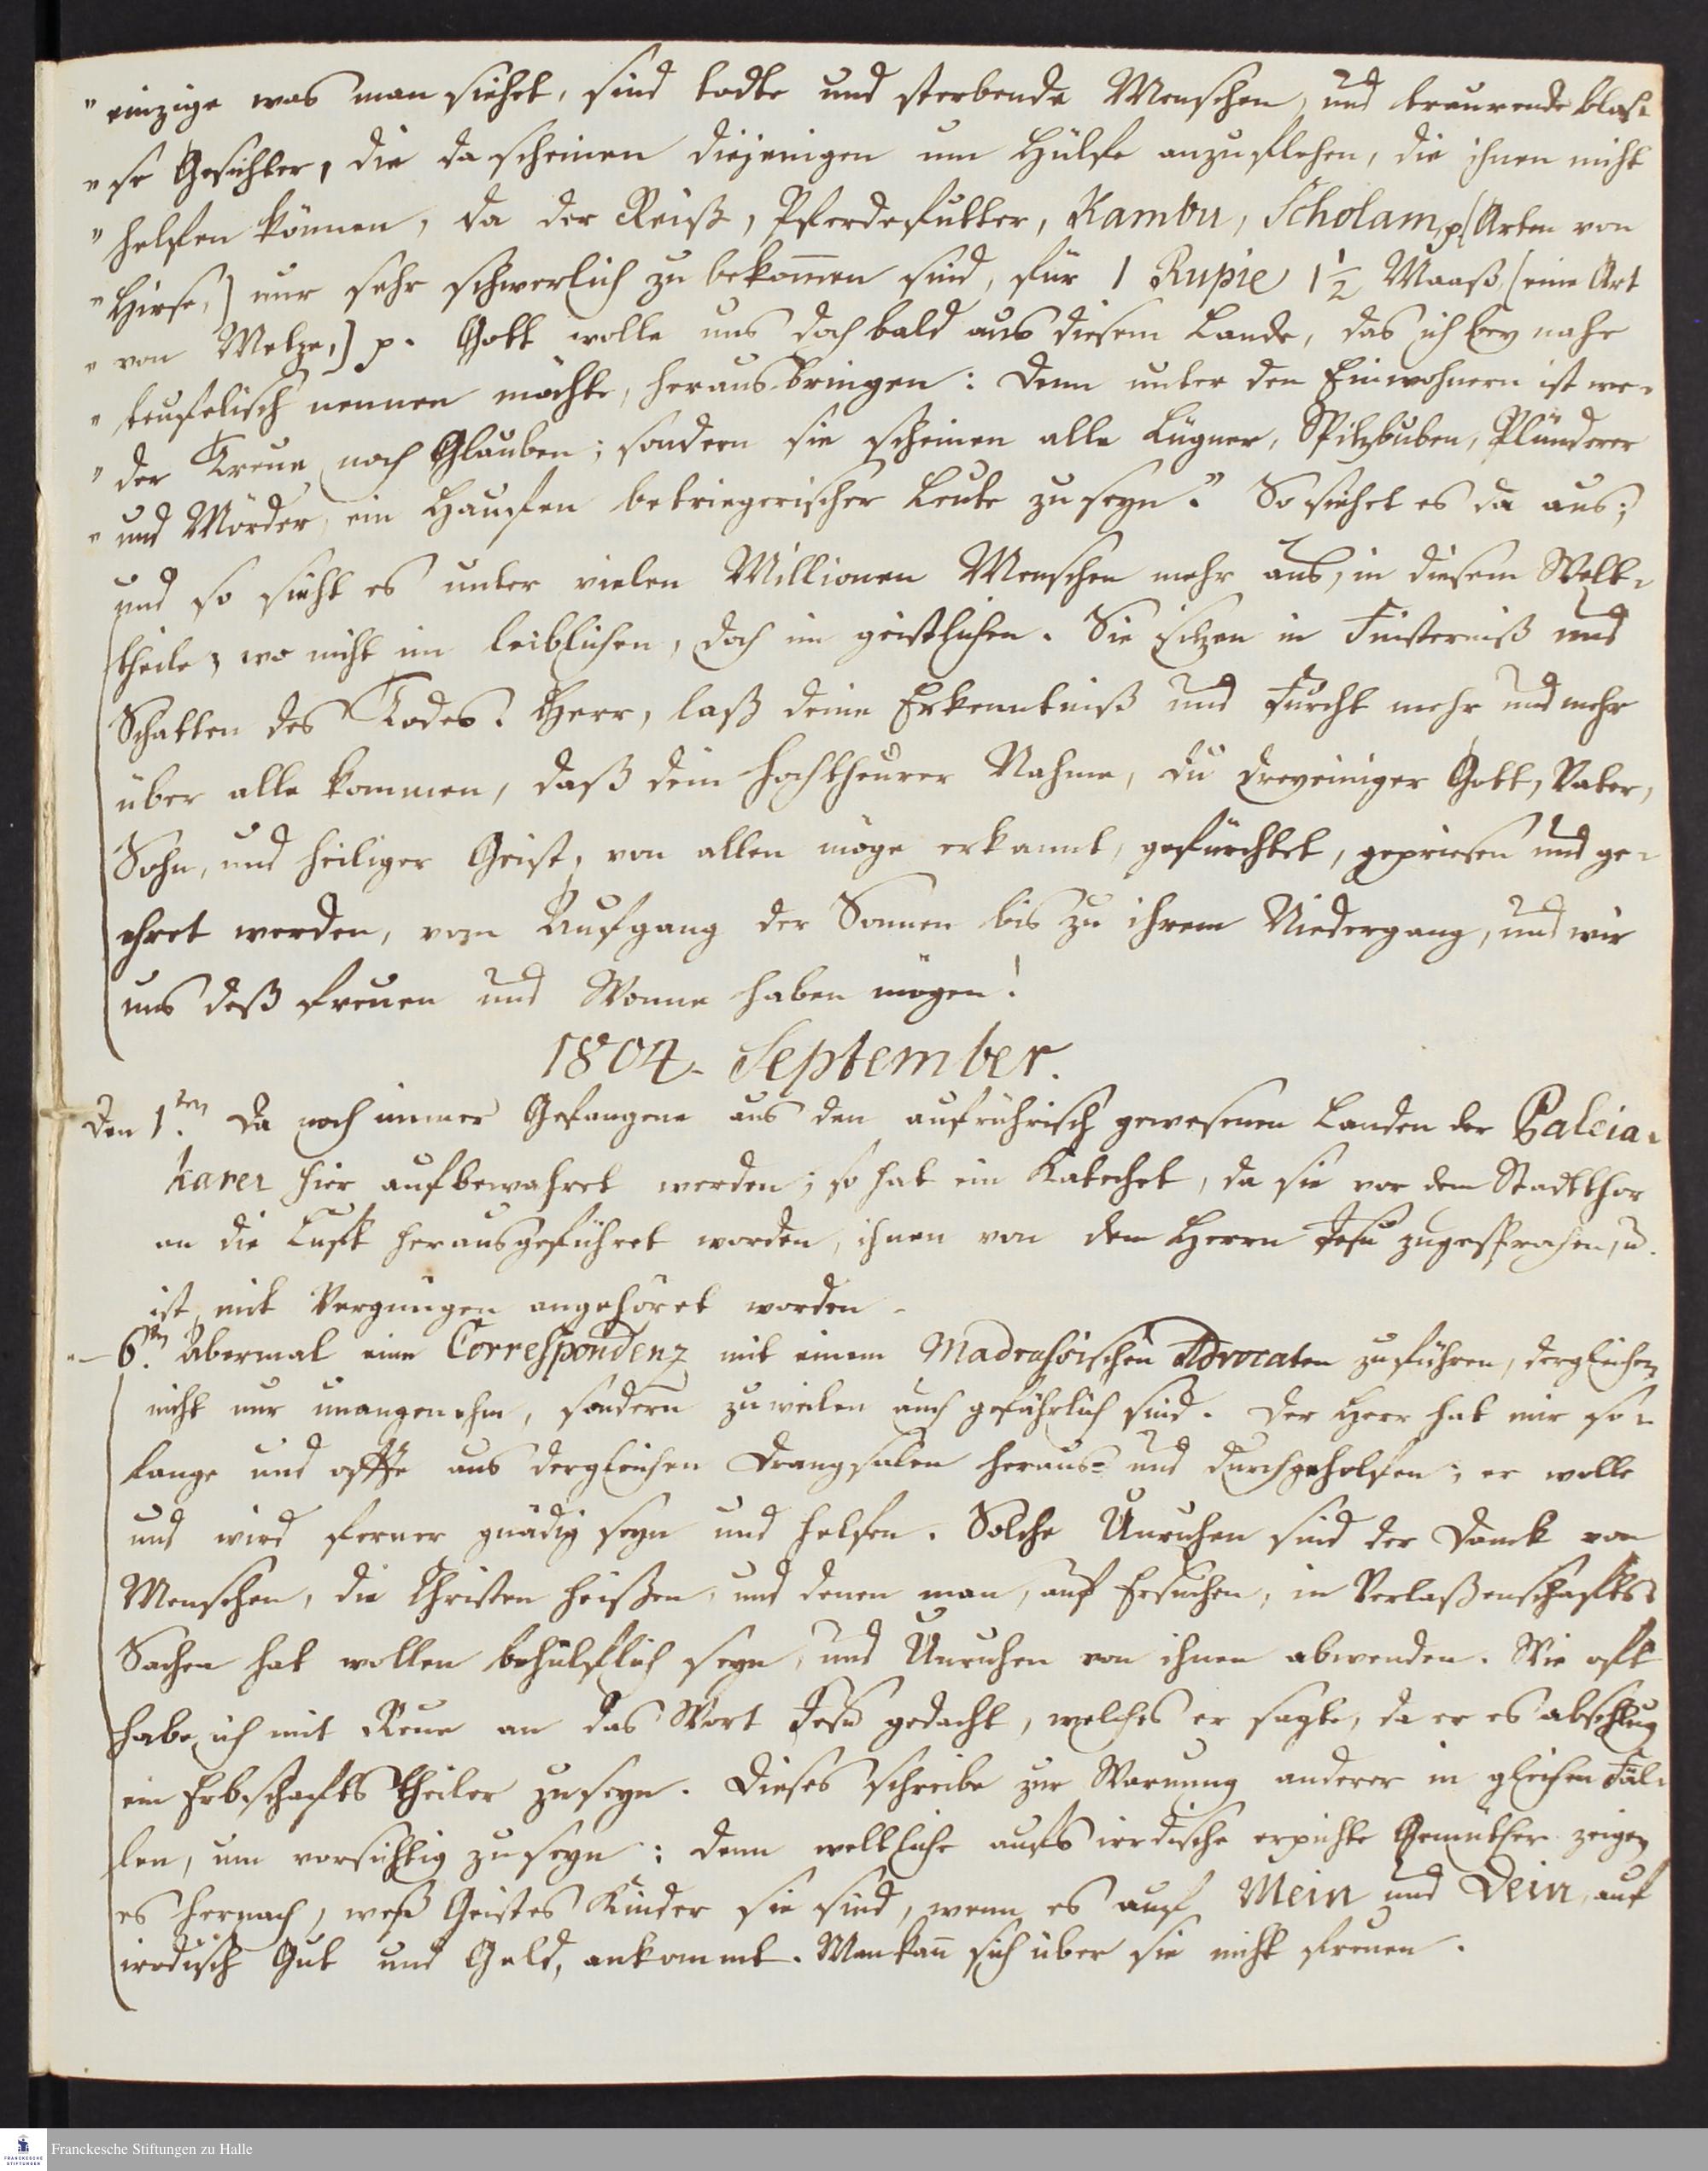 " einzige was man siehet, sind todte und sterbende Menschen, und traurende blas-
" se Gesichter, die da scheinen diejenigen um Hülfe anzuflehen, die ihnen nicht
" helfen können, da der Reiß, Pferdefutter, Kambu, Scholam, p (Arten von
" Hirse,) nur sehr schwerlich zu bekom̄en sind, für 1 Rupie 1½ Maaß, (eine Art
" von Metze,) p. Gott wolle uns doch bald aus diesem Lande, das ich bey nahe
" teufelisch nennen möchte, heraus bringen: denn unter den Einwohnern ist we-
" der Treue noch Glauben; sondern sie scheinen alle Lügner, Spitzbuben, Plünderer
" und Mörder, ein Hauffen betriegerischer Leute zu seyn." So siehet es da aus;
und so sieht es unter vielen Millionen Menschen mehr aus, in diesem Welt-
theile; wo nicht im leiblichen, doch im geistlichen. Sie sitzen in Finsterniß und
Schatten des Todes. Herr, laß deine Erkenntniß und Furcht mehr und mehr
über alle kommen, daß dein hochtheurer Nahme, du dreyeiniger Gott, Vater,
Sohn, und heiliger Geist, von allen möge erkannt, gefürchtet, gepriesen und ge-
ehret werden, vom Aufgang der Sonnen bis zu ihrem Niedergang, und wir
uns deß freuen und Wonne haben mögen!
1804. September.
Den 1.ten Da noch immer Gefangene aus den aufrührisch gewesenen Landen der Paleia-
karer hier aufbewahret werden; so hat ein Katechet, da sie vor dem Stadtthor
an die Luft herausgeführet worden, ihnen von dem Herrn Jesu zugesprochen, u.
ist mit Vergnügen angehöret worden.
" — 6.ten Abermal eine Correspondenz mit einem Madrasischen Advocaten zu führen, dergleichen
nicht nur unangenehm, sondern zuweilen auch gefährlich sind. Der Herr hat mir so-
lange und offte aus dergleichen Drangsalen heraus- und durchgeholfen; er wolle
und wird ferner gnädig seyn und helfen. Solche Unruhen sind der Danck von
Menschen, die Christen heißen, und denen man, auf Ersuchen, in Verlaßenschafts
Sachen hat wollen behülflich seyn, und Unruhen von ihnen abwenden. Wie oft
habe ich mit Reue an das Wort Jesu gedacht, welches er sagte, da er es abschlug
ein Erbschafts theiler zu seyn. Dieses schreibe zur Warnung anderer in gleichen Fäl-
len, um vorsichtig zu seyn: denn weltliche aufs irdische erpichte Gemüther zeigen
es hernach, weß Geistes Kinder sie sind, wenn es auf Mein und Dein, auf
irrdisch Gut und Geld, ankommt. Man kan̄ sich über sie nicht freuen.
Franckesche Stiftungen zu Halle
FRANCKESCHE
STIFTUNGEN